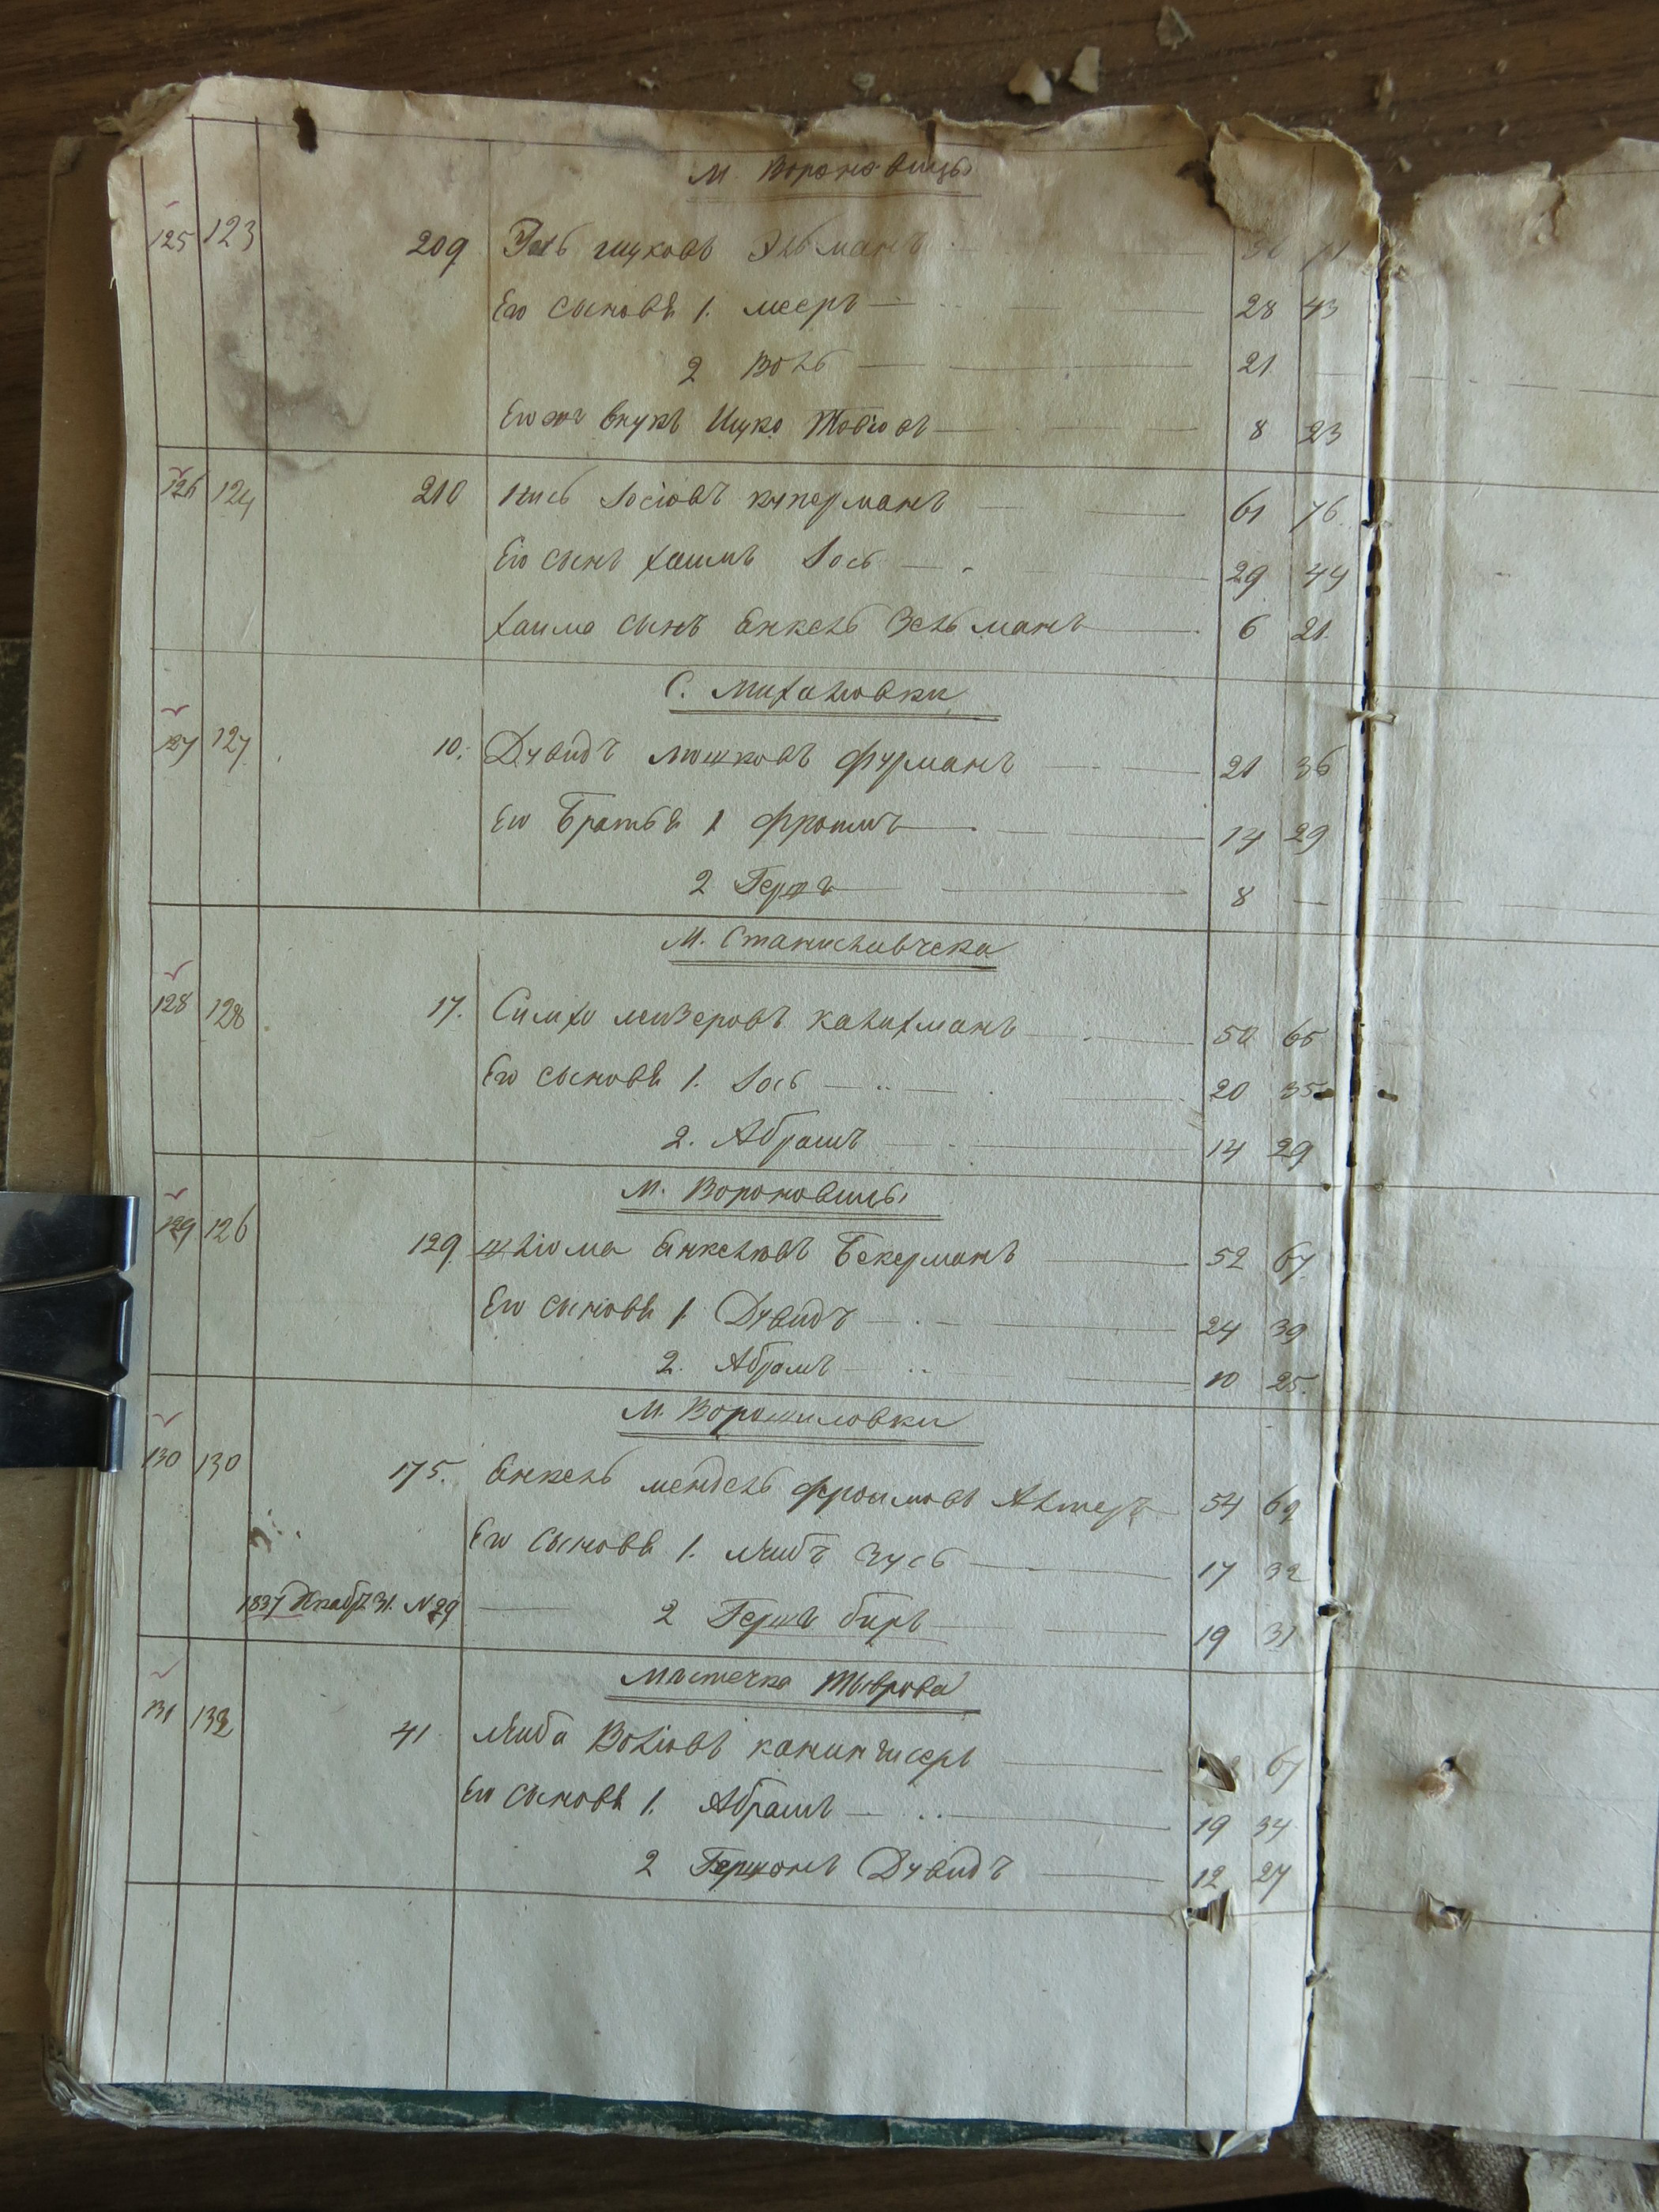 М. Вороновицы
125 123 209 Зель ицковъ Зельманъ 56 71
Его сыновья 1. Мееръ 28 43
2 Воль 21
Его же внукъ Ицко Товіовъ 8 23
126 124 210 Нись Іосіовъ Куперманъ 61 76
Его сынъ Хаимъ Іось 29 44
Хаима сынъ Енкель Зельманъ 6 21
С. Михаловки
127 127 10. Дувидъ Мошковъ Фурманъ 21 36
Его Братья 1 Фроимъ 14 29
2 Гершъ 8
М. Станиславчека
128 128 17. Симхо Лейзеровъ Калихманъ 50 65
Его сыновья 1. Іось 20 35
2. Абрамъ 14 29
М. Вороновицы
129 126 129 Шліома Енкеліовъ Бекерманъ 52 67
Его сыновья 1 Дувидъ 24 39
2. Абрамъ 10 25
М. Ворошиловки
130 130 175. Енкель Мендель Фроимовъ Альтеръ 54 69
Его сыновья 1. Лейбъ Зусь 17 32
1837 Декабр. 31. № 29 2 Гершъ Беръ 19 31
Мѣстечка Тыврова
131 132 41 Лейба Воліовъ 67
Его сыновья 1. Абрамъ 19 34
2 Гершонъ Дувидъ 12 27